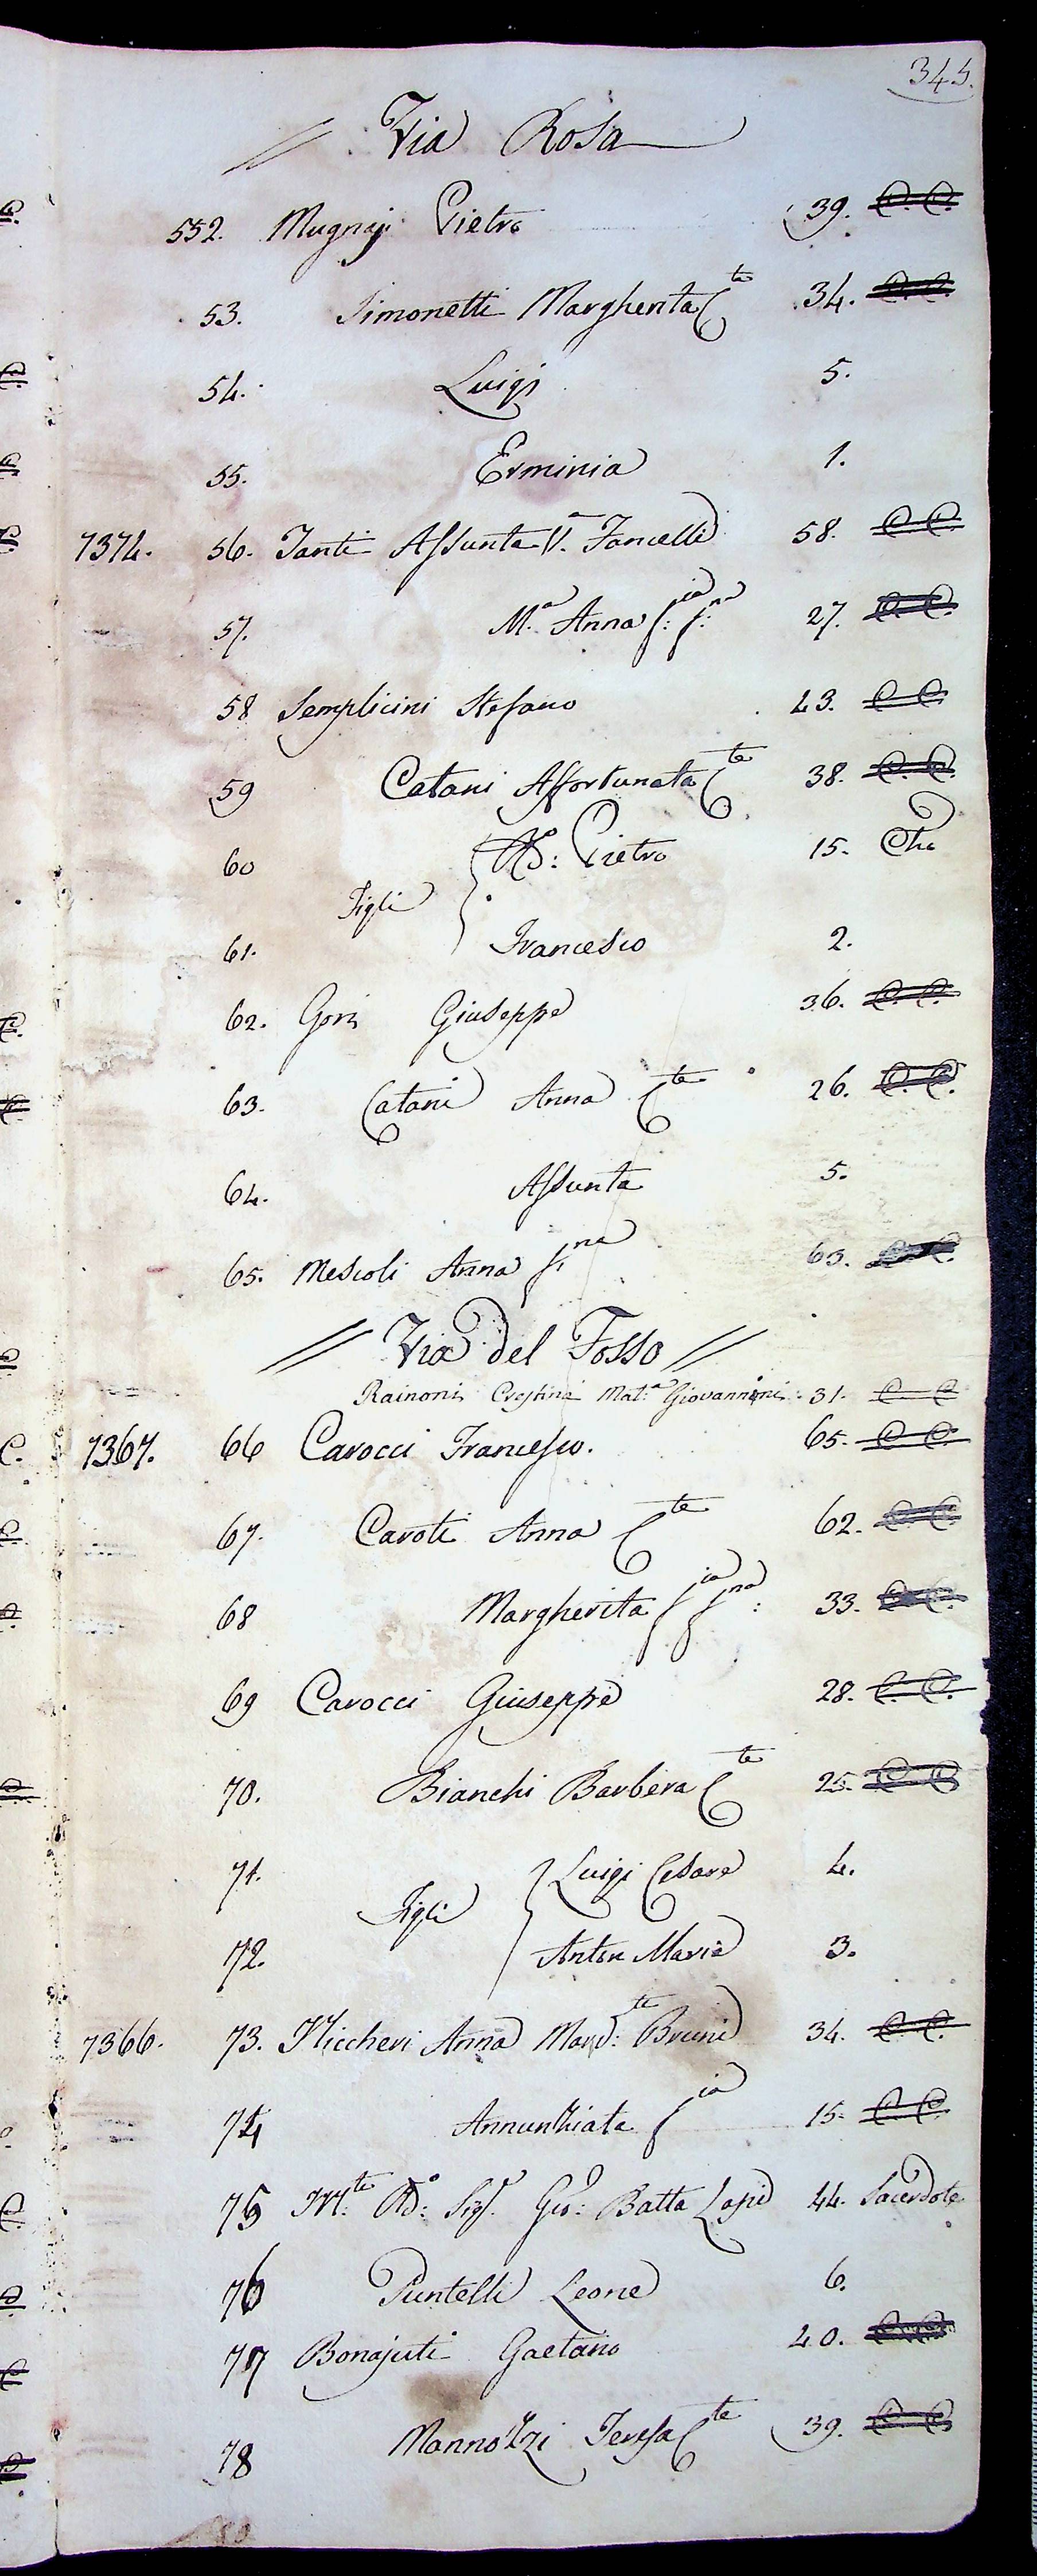 345.
Via Rosa
552. Mugnaj Pietro 39. C. C.
53. Simonetti Margherita C.te 34. C. C.
54. Luigi 5.
55. Erminia 1.
7374. 56. Tanti Assunta V.a Fancelli 58. C C.
57. M.a Anna f:ia f:na 27. C C.
58 Semplicini Stefano 43. C C
59 Catani Affortunata C.te 38. C. C.
60 Ab: Pietro 15. Cho
Figli
61. Francesco 2.
62. Gori Giuseppe 36. C. C.
63. Catani Anna C.te 26. C. C.
64. Assunta 5.
65. Mescoli Anna f.na 63. C. C.
Via del Fosso
Rainoni Mat:a Giovannoni 31. C C
7367. 66 Carocci Francesco. 65. C C.
67. Caroti Anna C.te 62. C C
68 Margherita f.ia f.na: 33. C C.
69 Carocci Giuseppe 28. C. C.
70. Bianchi Barbera C.te 25. C C
71. Luigi Cesare 4.
Figli
72. Anton Maria 3.
7366. 73. Niccheri Anna Mard:te Bruni 34. C C.
74 Annunziata f.ia 15. C C.
75 M:to Rd:o Sigr. Gio: Batta Lapi 44. Sacerdote
76 Puntelli Leone 6.
77 Bonajuti Gaetano 40. C C
78 Mannozzi Teresa C.te 39. C C